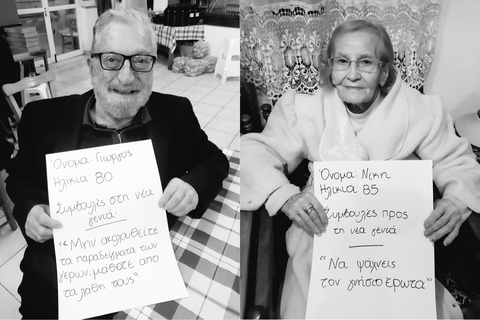 Όνομα: Γιώργος
Ηλικία: 80
Συμβουλές στη νέα
γενιά:
"Μην ακολουθείτε
τα παραδείγματα των
γέρων, μάθετε απο
τα λάθη τους"
Όνομα: Νίκη
Ηλικία: 85
Συμβουλές προς
τη νέα γενιά:
"Να ψάχνεις
τον γνήσιο έρωτα"